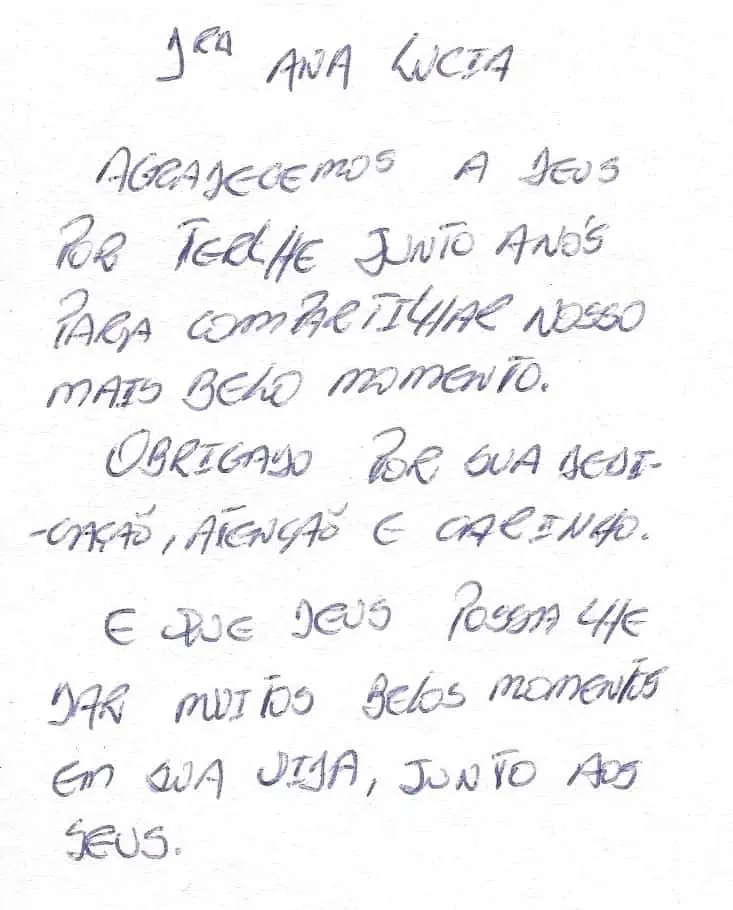 DRA ANA LUCIA
AGRADECEMOS A DEUS
POR TERLHE JUNTO A NÓS
PARA COMPARTILHAR NOSSO
MAIS BELO MOMENTO.
OBRIGADO POR SUA DEDI-
-CAÇÃO, ATENÇÃO E CARINHO.
E QUE DEUS POSSA LHE
DAR MUITOS BELOS MOMENTOS
EM SUA VIDA, JUNTO AOS
SEUS.